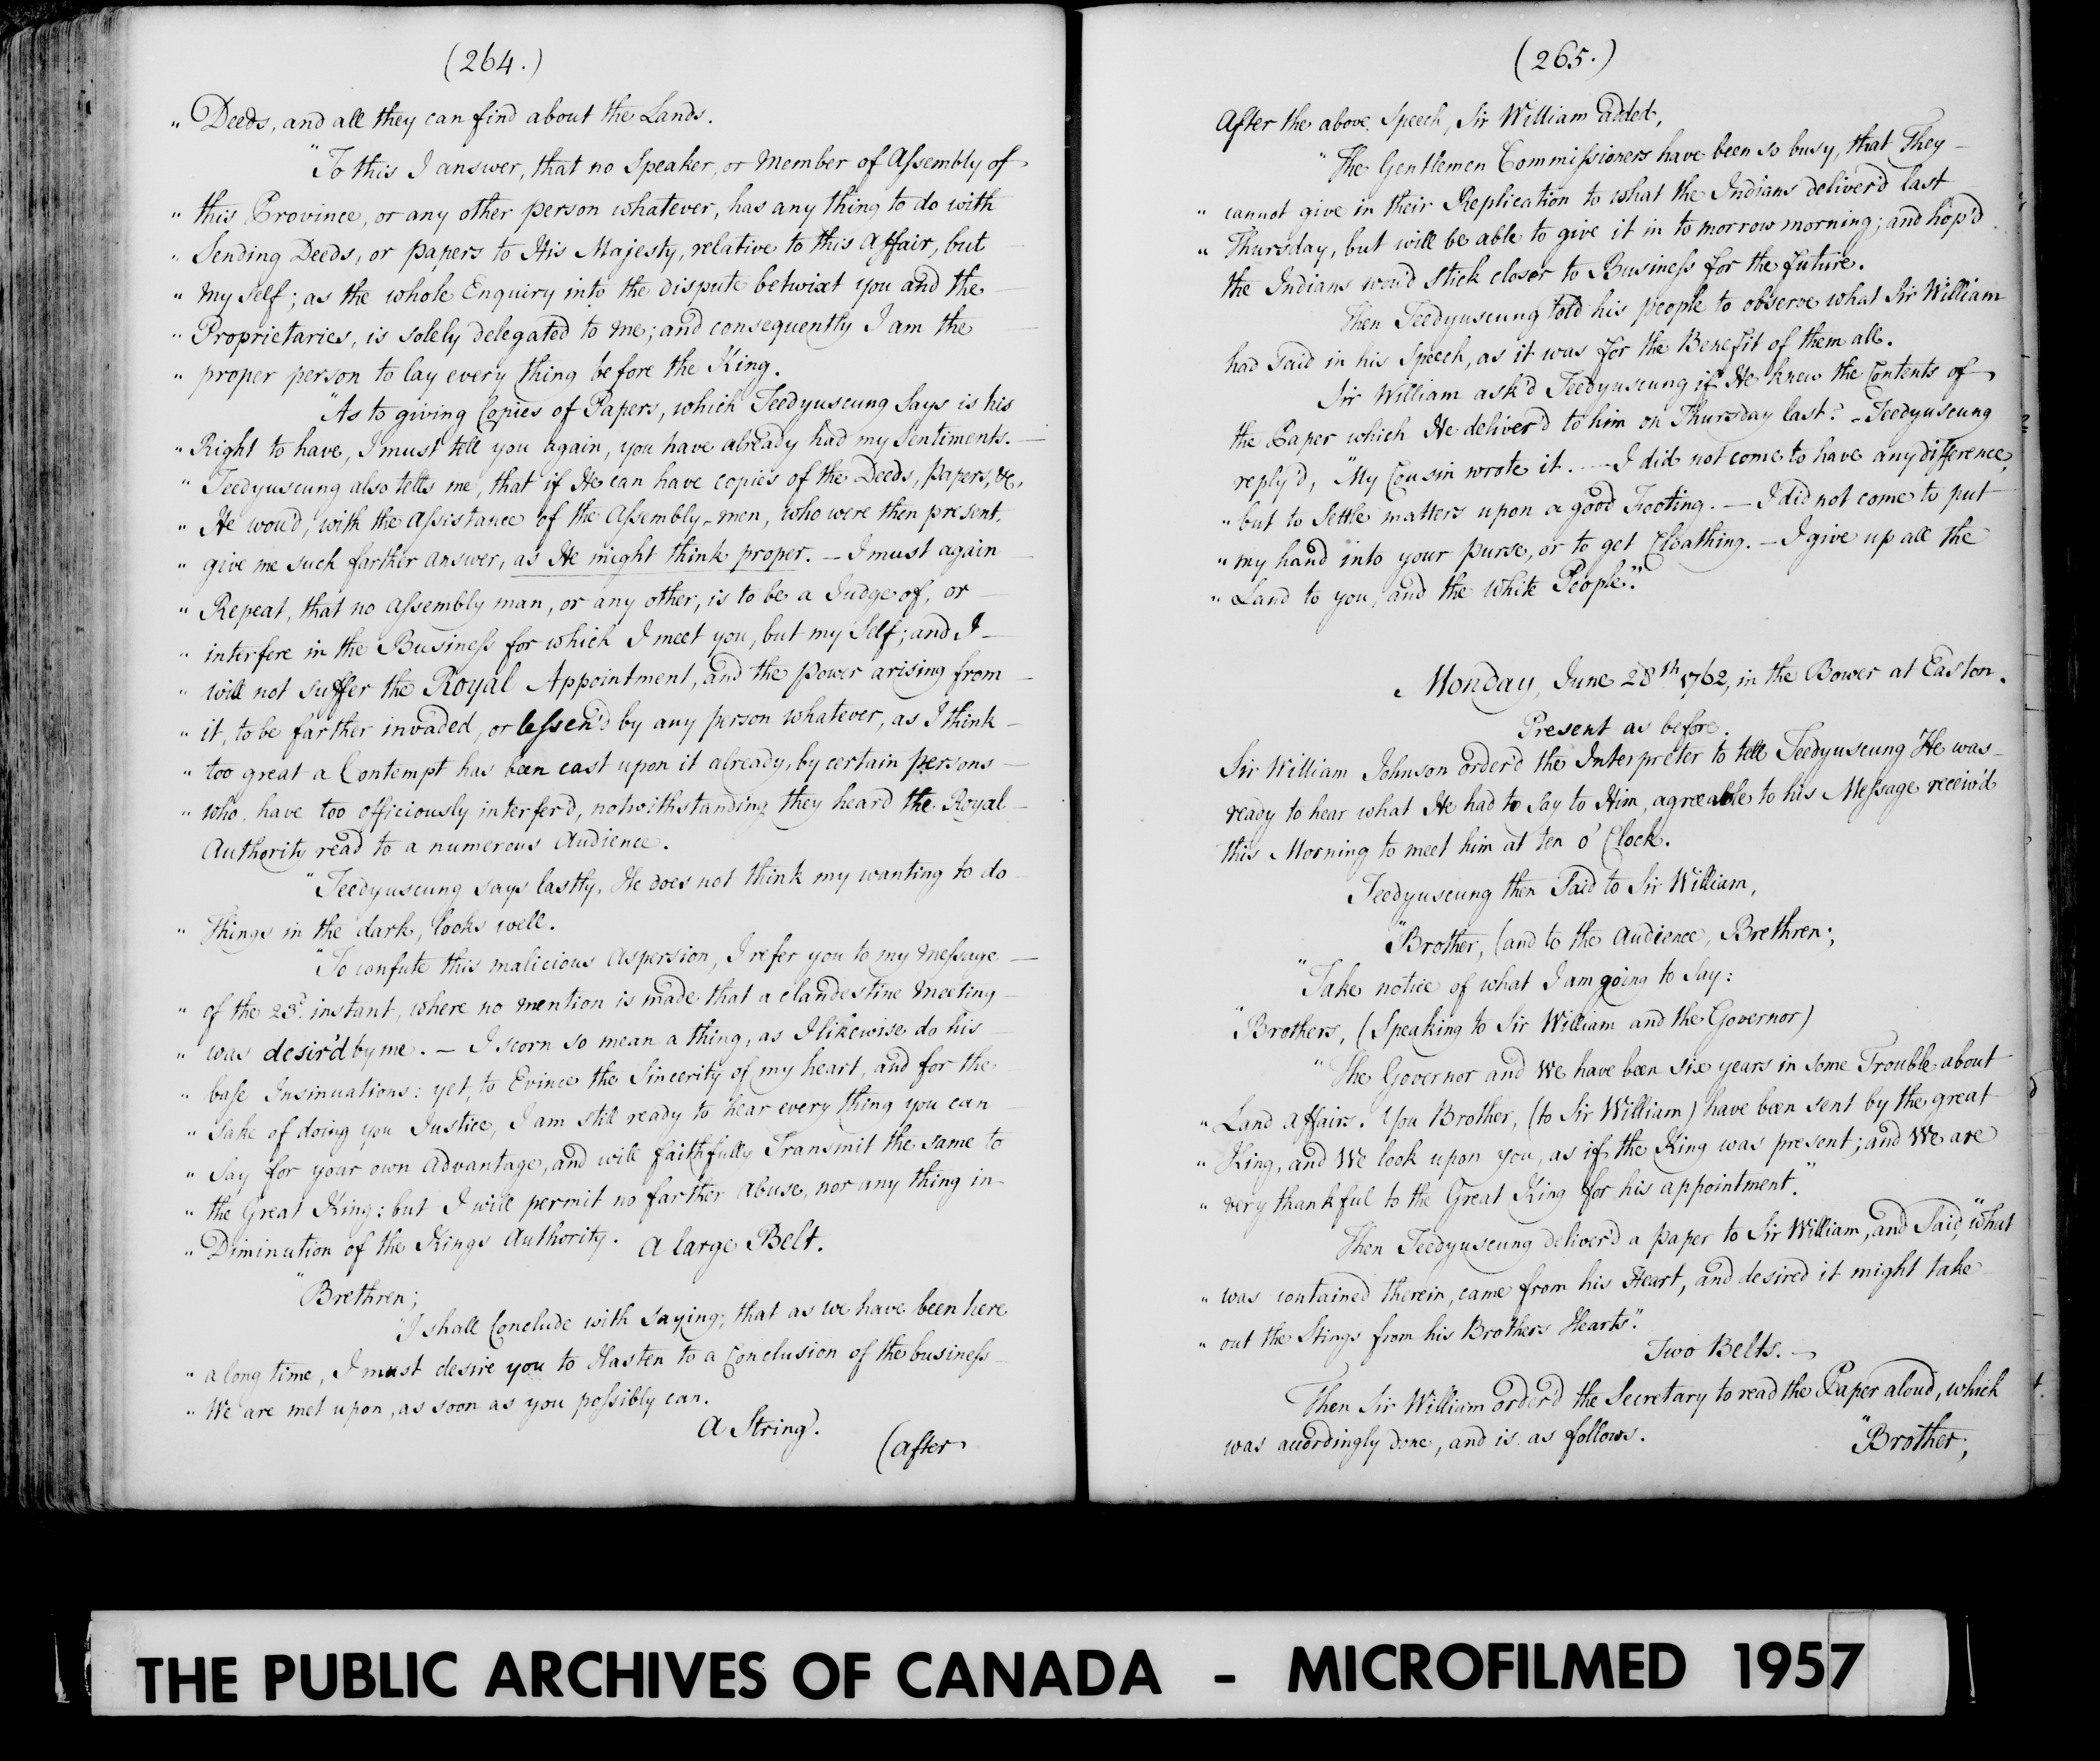 (264.)
„ Deeds, and all they can find about the Lands.
"To this I answer, that no Speaker, or Member of Assembly of
„ this Province, or any other person whatever, has any thing to do with
„ Sending Deeds, or papers to His Majesty, relative to this Affair, but
„ my self; as the whole Enquiry into the dispute betwixt you and the
„ Proprietaries, is solely delegated to me; and consequently I am the
„ proper person to lay every thing before the King.
"As to giving Copies of Papers, which Teedyuscung Says is his
„ Right to have, I must tell you again, you have already had my Sentiments. —
„ Teedyuscung also tells me, that if He can have copies of the Deeds, papers, &c,
„ He wou'd, with the Assistance of the Assembly-men, who were then present,
„ give me such farther answer, as He might think proper. — I must again
„ Repeat, that no Assembly man, or any other, is to be a Judge of, or —
„ interfere in the Business for which I meet you, but my Self; and I —
„ will not suffer the Royal Appointment, and the power arising from —
„ it, to be farther invaded, or lessen'd by any person whatever, as I think —
„ too great a Contempt has been cast upon it already, by certain persons —
„ who have too officiously interfer'd, notwithstanding they heard the Royal
Authority read to a numerous Audience.
"Teedyuscung says lastly, He does not think my wanting to do
„ Things in the dark, looks well.
"To confute this malicious aspersion, I refer you to my Message —
„ of the 23d. instant, where no mention is made that a clandestine Meeting
„ was desir'd by me. — I scorn so mean a thing, as I likewise do his
„ base Insinuations: yet, to Evince the Sincerity of my heart, and for the
„ sake of doing you Justice, I am still ready to hear every thing you can
„ Say for your own Advantage, and will faithfully Transmit the same to
„ the Great King: but I will permit no farther abuse, nor any thing in
„ Diminution of the Kings Authority. A large Belt.
"Brethren;
"I shall Conclude with saying; that as we have been here
„ a long time, I must desire you to Hasten to a Conclusion of the business
„ We are met upon, as soon as you possibly can.
A String.
(after
(265.)
After the above Speech, Sir William added,
"The Gentlemen Commissioners have been so busy, that They —
„ cannot give in their Replication to what the Indians deliver'd last
„ Thursday, but will be able to give it in to morrow morning; and hop'd
the Indians wou'd stick closer to Business for the future.
Then Teedyuscung told his people to observe what Sir William
had said in his Speech, as it was for the Benefit of them all.
Sir William ask'd Teedyuscung if He knew the Contents of
the Paper which He deliver'd to him on Thursday last? - Teedyuscung
reply'd, "My Cousin wrote it. — I did not come to have any difference,
„ but to Settle matters upon a good Footing. — I did not come to put
„ my hand into your purse, or to get Cloathing. — I give up all the
„ Land to you, and the White People."
Monday, June 28th 1762, in the Bower at Easton.
Present as before.
Sir William Johnson order'd the Interpreter to tell Teedyuscung He was
ready to hear what He had to say to Him, agreeable to his Message receiv'd
this Morning to meet him at ten o' Clock.
Teedyuscung then Said to Sir William,
"Brother, (and to the Audience, Brethren;
"Take notice of what I am going to Say:
"Brothers, (Speaking to Sir William and the Governor)
"The Governor and We have been six years in some Trouble about
„ Land Affairs. You Brother, (to Sir William) have been sent by the great
„ King, and We look upon you, as if the King was present; and We are
„ very thankful to the Great King for his appointment."
Then Teedyuscung deliver'd a paper to Sir William, and Said, "what
„ was contained therein, came from his Heart, and desired it might take
„ out the Stings from his Brothers Hearts".
Two Belts. —
Then Sir William order'd the Secretary to read the Paper aloud, which
was accordingly done, and is as follows.
"Brother;
THE PUBLIC ARCHIVES OF CANADA - MICROFILMED 1957